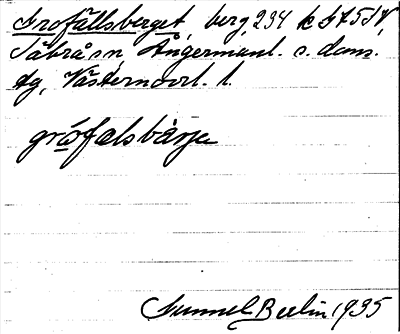 Grofällsberget, berg, 234 k F 7 5 I V,
Säbrå sn, Ångermanl. s. doms.
tg, Västernorrl. l.
grófalsbärje
Gunnel Beelin 1935